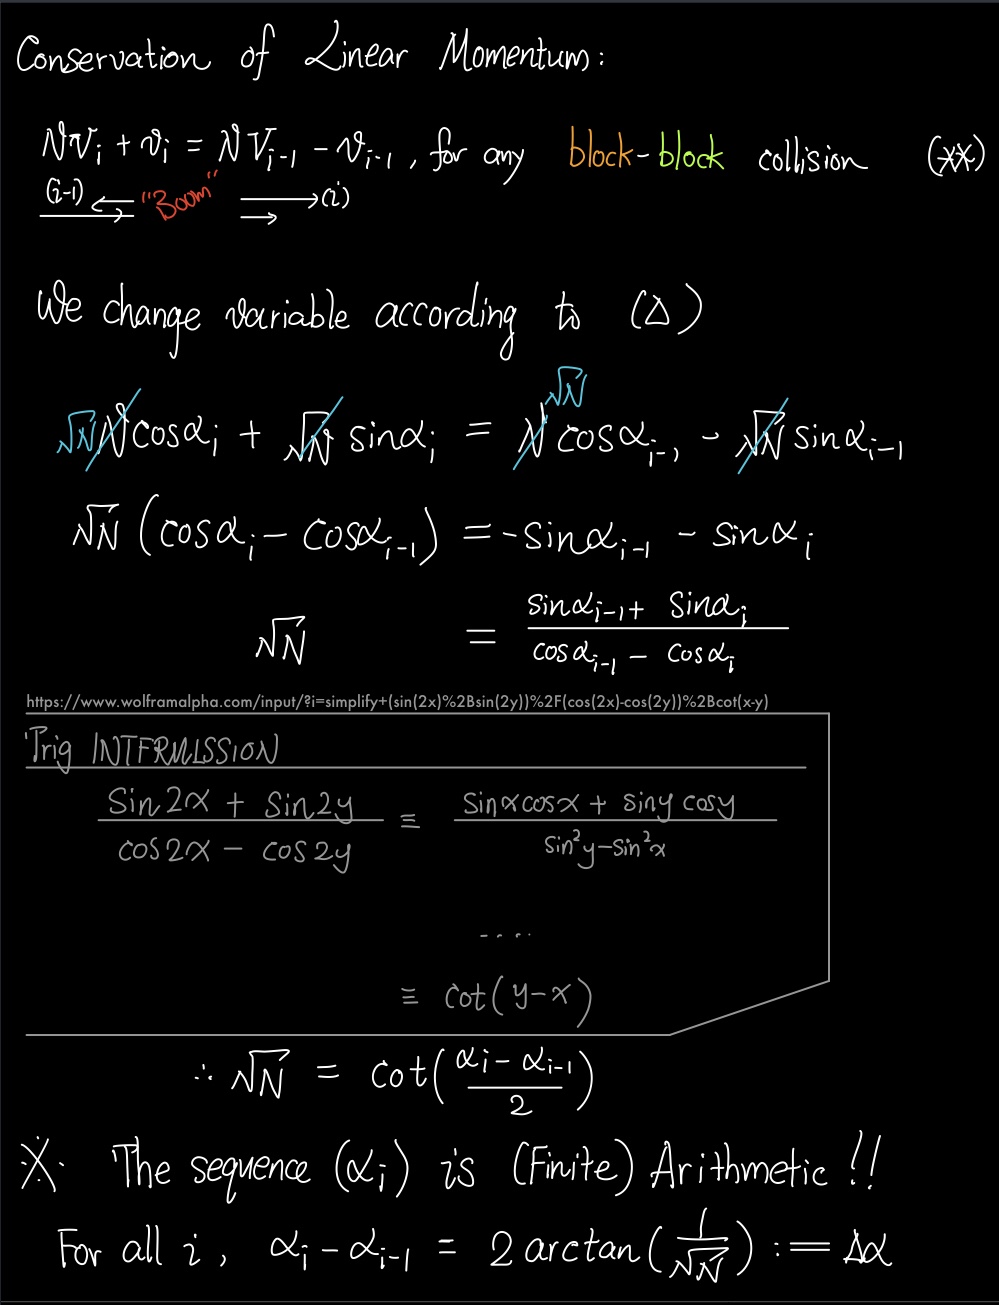 Conservation of Linear Momentum:
NV_i + v_i = NV_{i-1} - v_{i-1}, for any block-block collision (**)
(i-1) "Boom" (i)
We change variable according to (Δ)
√N N cosα_i + √N sinα_i = N √N cosα_{i-1} - √N sinα_{i-1}
√N (cosα_i - cosα_{i-1}) = -sinα_{i-1} - sinα_i
√N = (sinα_{i-1} + sinα_i) / (cosα_{i-1} - cosα_i)
https://www.wolframalpha.com/input/?i=simplify+(sin(2x)%2Bsin(2y))%2F(cos(2x)-cos(2y))%2Bcot(x-y)
Trig INTERMISSION
(Sin2x + Sin2y) / (cos2x - cos2y) ≡ (Sinxcosx + siny cosy) / (sin²y-sin²x)
....
≡ cot(y-x)
∴ √N = cot((α_i - α_{i-1}) / 2)
※ The sequence (α_i) is (Finite) Arithmetic!!
For all i, α_i - α_{i-1} = 2 arctan(1/√N) := Δα